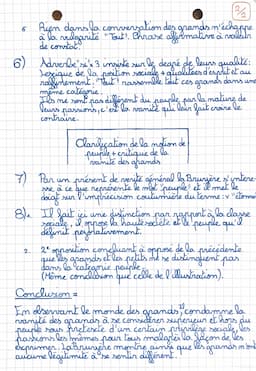 2/2
Rien dans la conversation des grands n'échappe
à la vulgarité "Tout". Phrase affirmative à valeur
de constat.
6) Adverbe "si" x 3 insiste sur le degré de leurs qualités.
Lexique de la position sociale + qualités d'esprit et au
raffinement. "Tout" rassemble tout ces grands dans une
même catégorie.
Ils ne sont pas différent du peuple par la nature de
leurs passions, c'est la vanité qui leur fait croire le
contraire.
Clarification de la notion de
peuple + critique de la
vanité des grands
7) Par un présent de vérité général la Bruyère s'intéres-
se à ce que représente le mot "peuple" et il met le
doigt sur l'imprécision coutumière du terme :
8) 1. Il fait ici une distinction par rapport à la classe
sociale, il oppose la haute société et le peuple qu'il
définit péjorativement.
2. 2e opposition concluant à oppose de la précédente
que les grands et les petits ne se distinguent pas
dans la catégorie peuple.
(Même conclusion que celle de l'illustration).
Conclusion =
En observant le monde des grands, condamne la
vanité des grands à se considérer supérieur et hors du
peuple sous prétexte d'un certain privilège sociale, les
passions les mêmes pour tous malgrés la façon de les
exprimer. La Bruyère montre ainsi que les grands n'ont
aucune légitimité à se sentir différent.